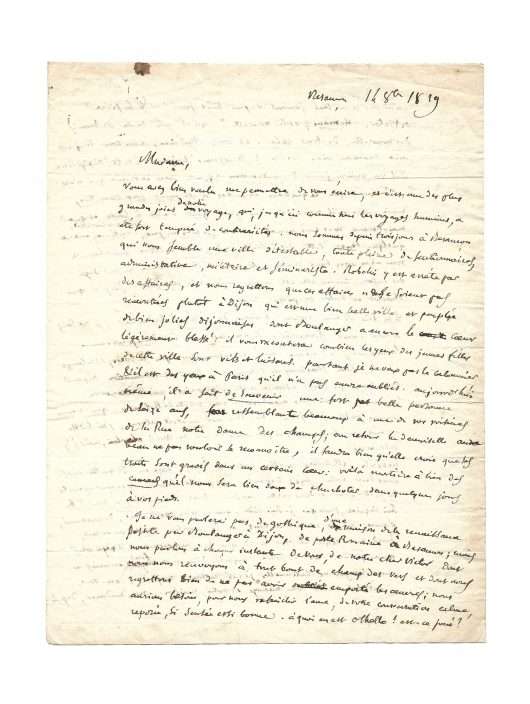 Besançon 16 8bre 1829
Madame,
Vous avez bien voulu me permettre de vous écrire, et c'est une des plus
grandes joies de notre voyage, qui, jusqu'ici comme tous les voyages humains, a
été fort coupé de contrariétés. nous sommes depuis trois jours à Besançon
qui nous semble une ville détestable, toute pleine de fonctionnaires,
administrative, militaire et séminariste. Robelin y est arrêté par
des affaires, et nous regrettons que ces affaires ne se soient pas
rencontrées plutôt à Dijon qui est une bien belle ville, et peuplée
de bien jolies dijonnaises dont Boulanger a encore le cœur
légèrement blessé. il vous racontera combien les yeux des jeunes filles
de cette ville sont vifs et luisans. pourtant je ne veux pas le calomnier
il est des yeux à Paris qu'il n'a pas encore oubliés. aujourd'hui
même, il a fait de souvenir une fort belle personne
de seize ans, ressemblante beaucoup à une de vos voisines
de la Rue notre Dame des champs; au retour la demoiselle aura
beau ne pas vouloir se reconnaître, il faudra bien qu'elle croie que ses
traits sont gravés dans un certain cœur: voilà matière à bien des
qu'il nous sera bien doux de chuchoter dans quelques jours
à vos pieds.
Je ne vous parlerai pas de gothique, d'une maison de la renaissance
par Boulanger à Dijon, de porte Romaine à Besançon; mais
nous parlons à chaque instant de vous, de notre cher Victor dont
nous récitons à tout bout de champ des vers et dont nous
regrettons bien de ne pas avoir emporté les œuvres; nous
aurions besoin, pour nous rafraîchir l'âme, de votre conversation calme,
reposée, si sensée et si bonne. à quoi en est Othello? est-ce joué?